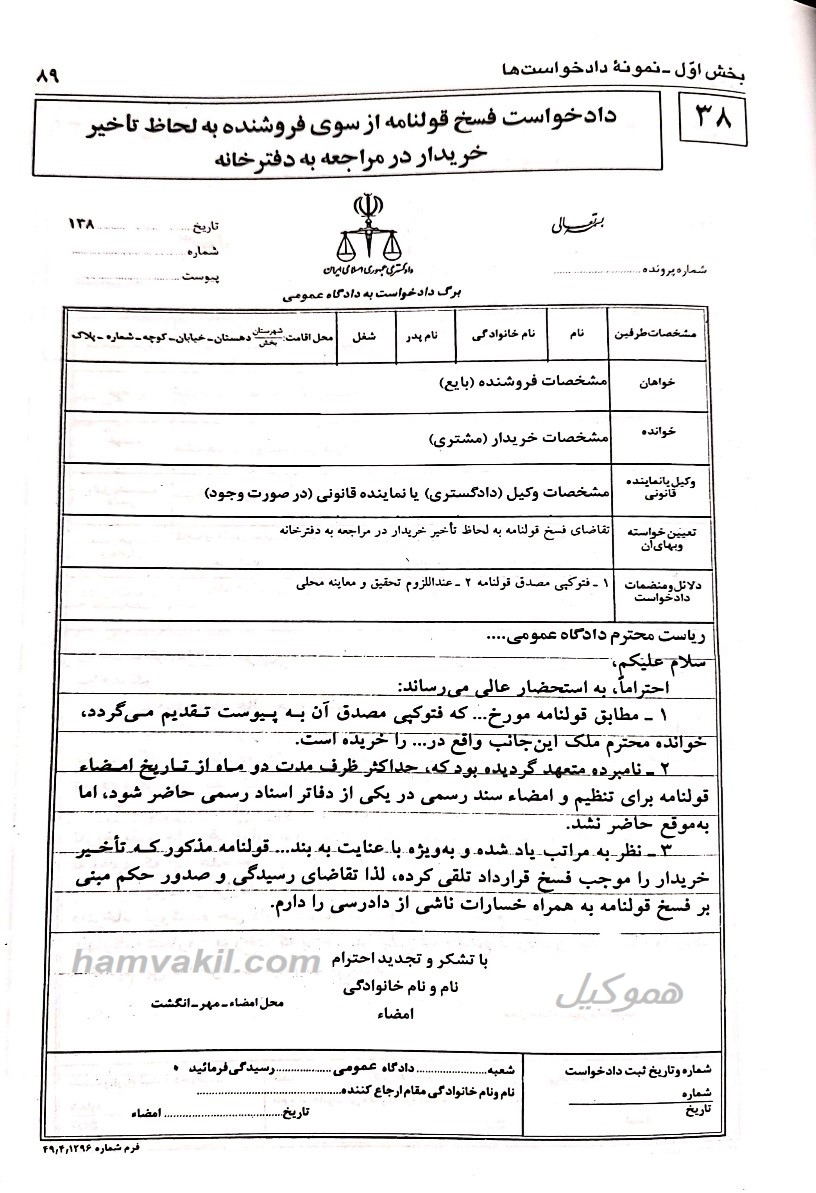 بخش اوّل ـ نمونهٔ دادخواست‌ها
۸۹
۳۸
دادخواست فسخ قولنامه از سوی فروشنده به لحاظ تأخیر
خریدار در مراجعه به دفترخانه
بسمه تعالی
تاریخ ........................ ۱۳۸
شماره ........................
پیوست ........................
شماره پرونده ........................
دادگستری جمهوری اسلامی ایران
برگ دادخواست به دادگاه عمومی
مشخصات طرفین
نام
نام خانوادگی
نام پدر
شغل
محل اقامت: شهرستان بخش دهستان ـ خیابان ـ کوچه ـ شماره ـ پلاک
خواهان
مشخصات فروشنده (بایع)
خوانده
مشخصات خریدار (مشتری)
وکیل یا نماینده قانونی
مشخصات وکیل (دادگستری) یا نماینده قانونی (در صورت وجود)
تعیین خواسته و بهای آن
تقاضای فسخ قولنامه به لحاظ تأخیر خریدار در مراجعه به دفترخانه
دلائل و منضمات دادخواست
۱ ـ فتوکپی مصدق قولنامه ۲ ـ عنداللزوم تحقیق و معاینه محلی
ریاست محترم دادگاه عمومی....
سلام علیکم،
احتراماً، به استحضار عالی می‌رساند:
۱ ـ مطابق قولنامه مورخ... که فتوکپی مصدق آن به پیوست تقدیم می‌گردد،
خوانده محترم ملک این‌جانب واقع در... را خریده است.
۲ ـ نامبرده متعهد گردیده بود که، حداکثر ظرف مدت دو ماه از تاریخ امضاء
قولنامه برای تنظیم و امضاء سند رسمی در یکی از دفاتر اسناد رسمی حاضر شود، اما
به‌موقع حاضر نشد.
۳ ـ نظر به مراتب یاد شده و به‌ویژه با عنایت به بند... قولنامه مذکور که تأخیر
خریدار را موجب فسخ قرارداد تلقی کرده، لذا تقاضای رسیدگی و صدور حکم مبنی
بر فسخ قولنامه به همراه خسارات ناشی از دادرسی را دارم.
با تشکر و تجدید احترام
نام و نام خانوادگی
امضاء
محل امضاء ـ مهر ـ انگشت
hamvakil.com
هموکیل
شماره و تاریخ ثبت دادخواست
شماره
تاریخ
شعبه ........................ دادگاه عمومی ........................ رسیدگی فرمائید
نام و نام خانوادگی مقام ارجاع کننده ........................
تاریخ ........................ امضاء
فرم شماره ۴۹٫۴٫۱۲۹۶